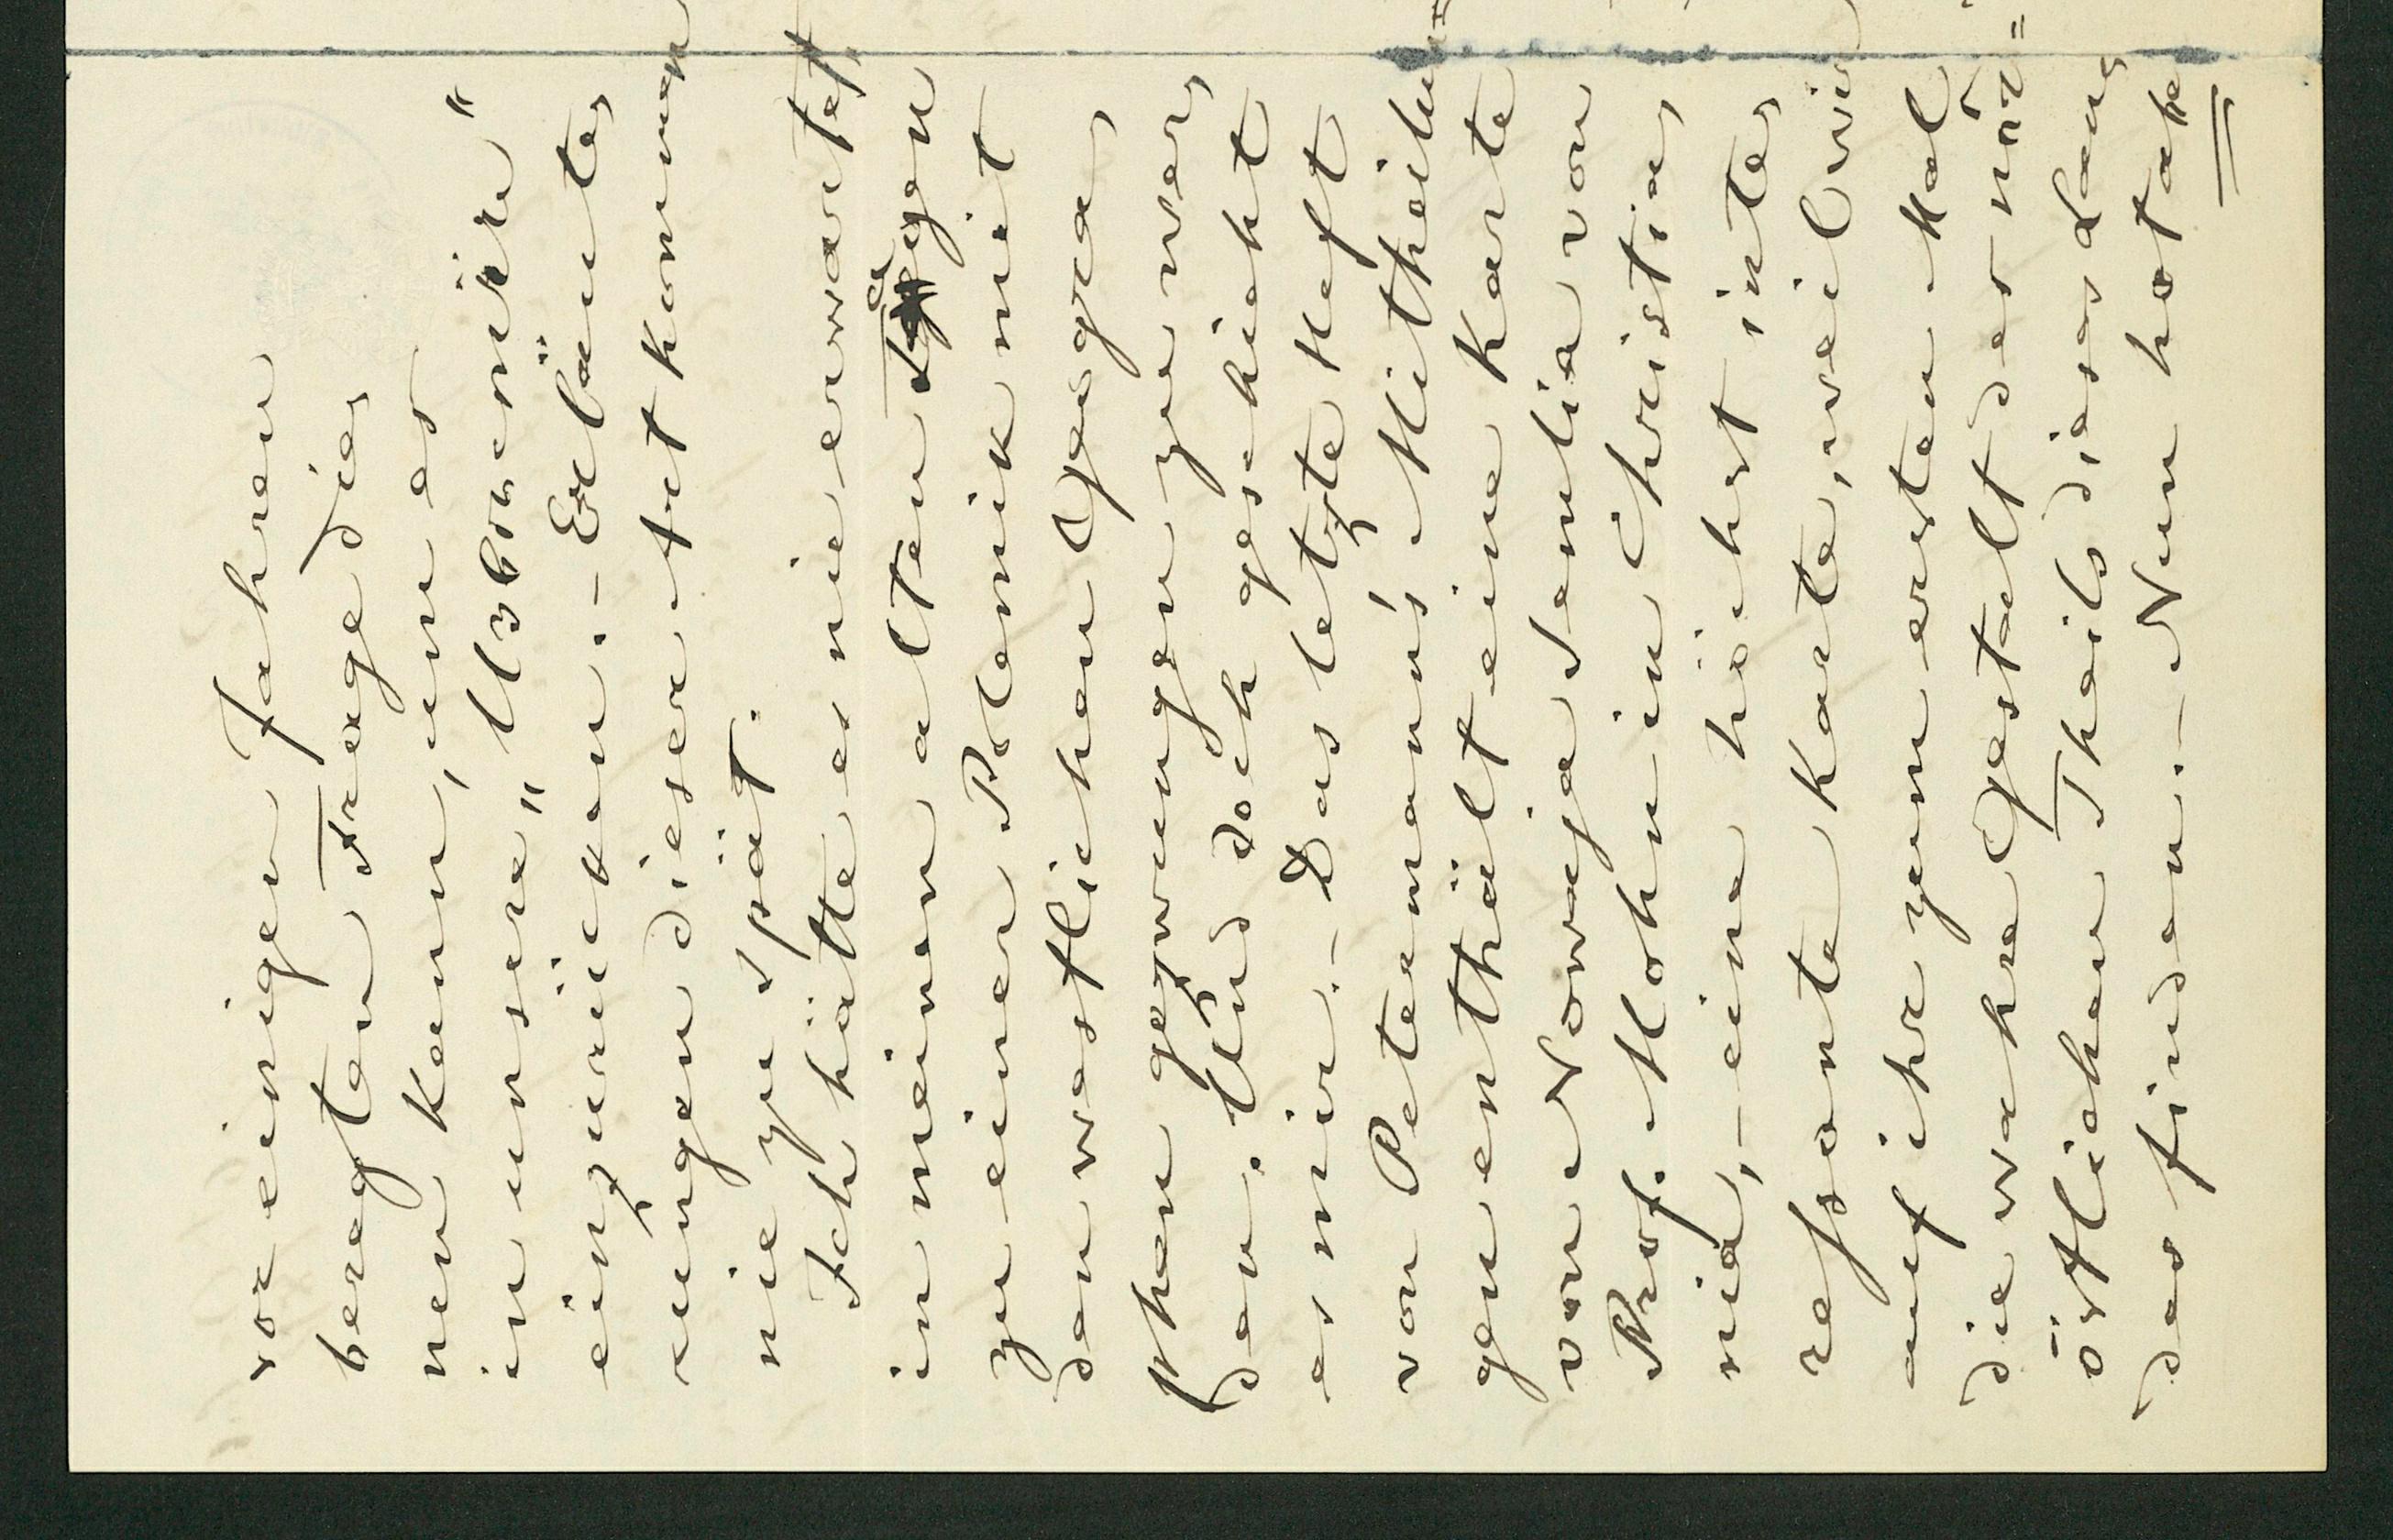 vor einigen Jahren
beregten Frage dies
nen kann, um es
in unsere „Uzbosenüre"
einzurücken. – Erläute
rungen dieser Art kommen
nie zu spät.
Ich hätte es nie erwartet
in meinen alten Tagen
zu einer Polemik mit
den westlichen Geogra
phen gezwungen zu wer
den. Und doch geschieht
es mir. – Das letzte Heft
von Petermann's Mittheilun=
gen enthält eine Karte
von Nowaja Semlia von
Prof. Mohn in Christia
nia, – eine höchst inte
ressante Karte, weil wir
auf ihr zum ersten Mal
die wahre Gestalt des nör=
östlichen Theils dieses Lan
des finden. – Nun hat aber